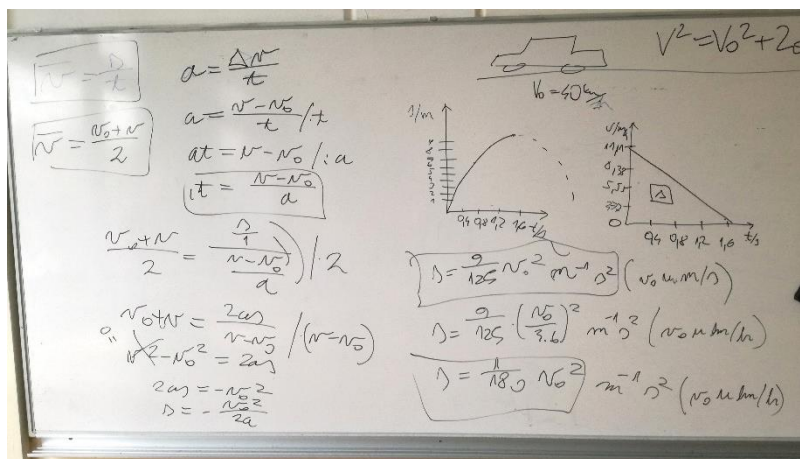 v̅ = s/t
v̅ = (v₀+v)/2
a = Δv/t
a = (v-v₀)/t /·t
at = v-v₀ /:a
t = (v-v₀)/a
(v₀+v)/2 = (s/1)/((v-v₀)/a) /·2
v₀+v = 2as/(v-v₀) /(v-v₀)
v²-v₀² = 2as
2as = -v₀²
s = -v₀²/2a
V² = V₀² + 2a
V₀ = 40 km/h
s/m
0,4 0,8 1,2 1,6 t/s
v/m/s
11,11
5,55
0
s
0,4 0,8 1,2 1,6 t/s
s = 9/125 v₀² m⁻¹ s² (v₀ u m/s)
s = 9/125 · (v₀/3.6)² m⁻¹ s² (v₀ u km/h)
s = 1/180 v₀² m⁻¹ s² (v₀ u km/h)